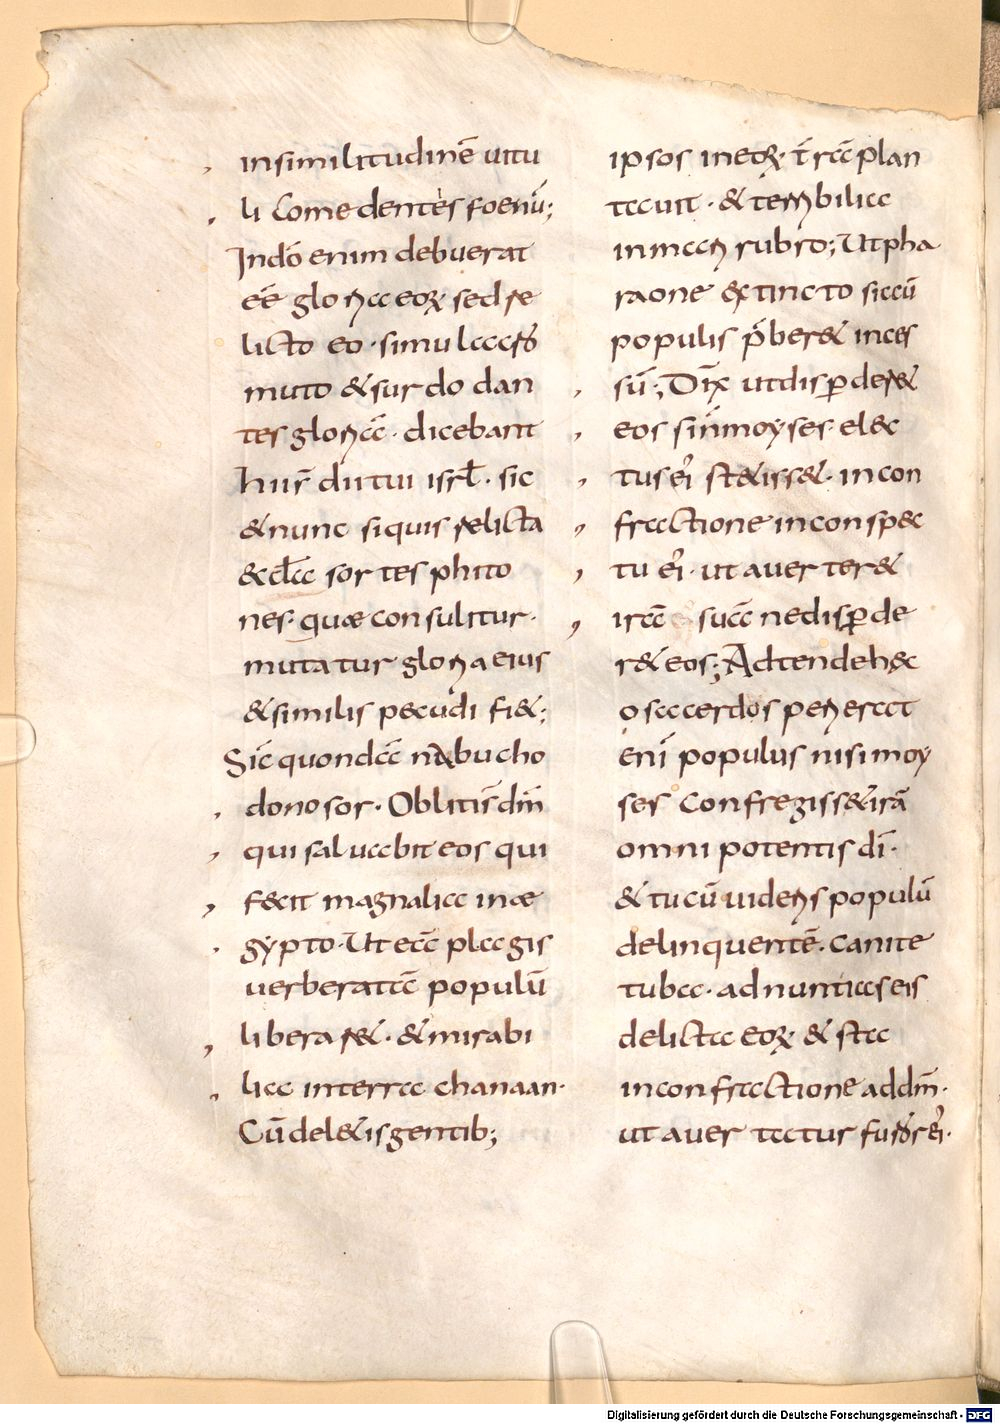 insimilitudinē uitu
li comedentes foenū;
Indō enim debuerat
eē gloria eoꝝ sed re
licto eo · simulacro
muto & surdo dan
tes gloriā · dicebant
hii s̄ dii tui isrl̄ · sic
& nunc siquis relicta
& cl̄a sortes phito
nes · quæ consulitur ·
mutatur gloria eius
& similis pecudi fi&;
Sic quondā nabucho
donosor · Obliti s̄ dm̄
qui saluabit eos qui
fecit magnalia in æ
gypto · Ut eā plagis
uerberatā populū
libera r& · & mirabi
lia interra chanaan ·
Cū del&is gentib;
ipsos ineoꝝ t̄ra plan
tauit · & terribilia
in mari rubro; Ut pha
raone extincto siccū
populis p̄ber& inces
sū; Dix̄ ut disꝑder&
eos si n̄ moyses elec
tus ei st&iss& · incon
fractione inconspec
tu ei · ut auerter&
irā suā ne disꝑde
r& eos; Adtende hęc
o sacerdos perierat
eni populus nisi moy
ses confregiss& irā
omnipotentis di ·
& tu cū uideris populū
delinquentē · canite
tuba · adnuntias eis
delicta eoꝝ & sta
inconfractione ad dm̄ ·
ut auertatur furor ei ·
Digitalisierung gefördert durch die Deutsche Forschungsgemeinschaft - DFG